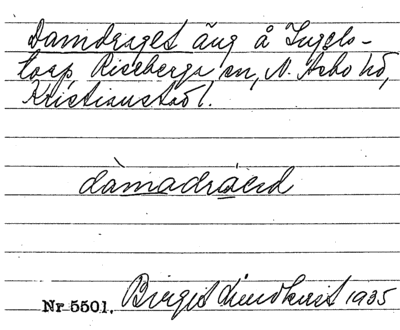 Damdraget äng å Ingels-
torp, Riseberga sn, N. Åsbo hd,
Kristianstad l.
dàmadráed
Nr 5501. Birgit Lindkvist 1935